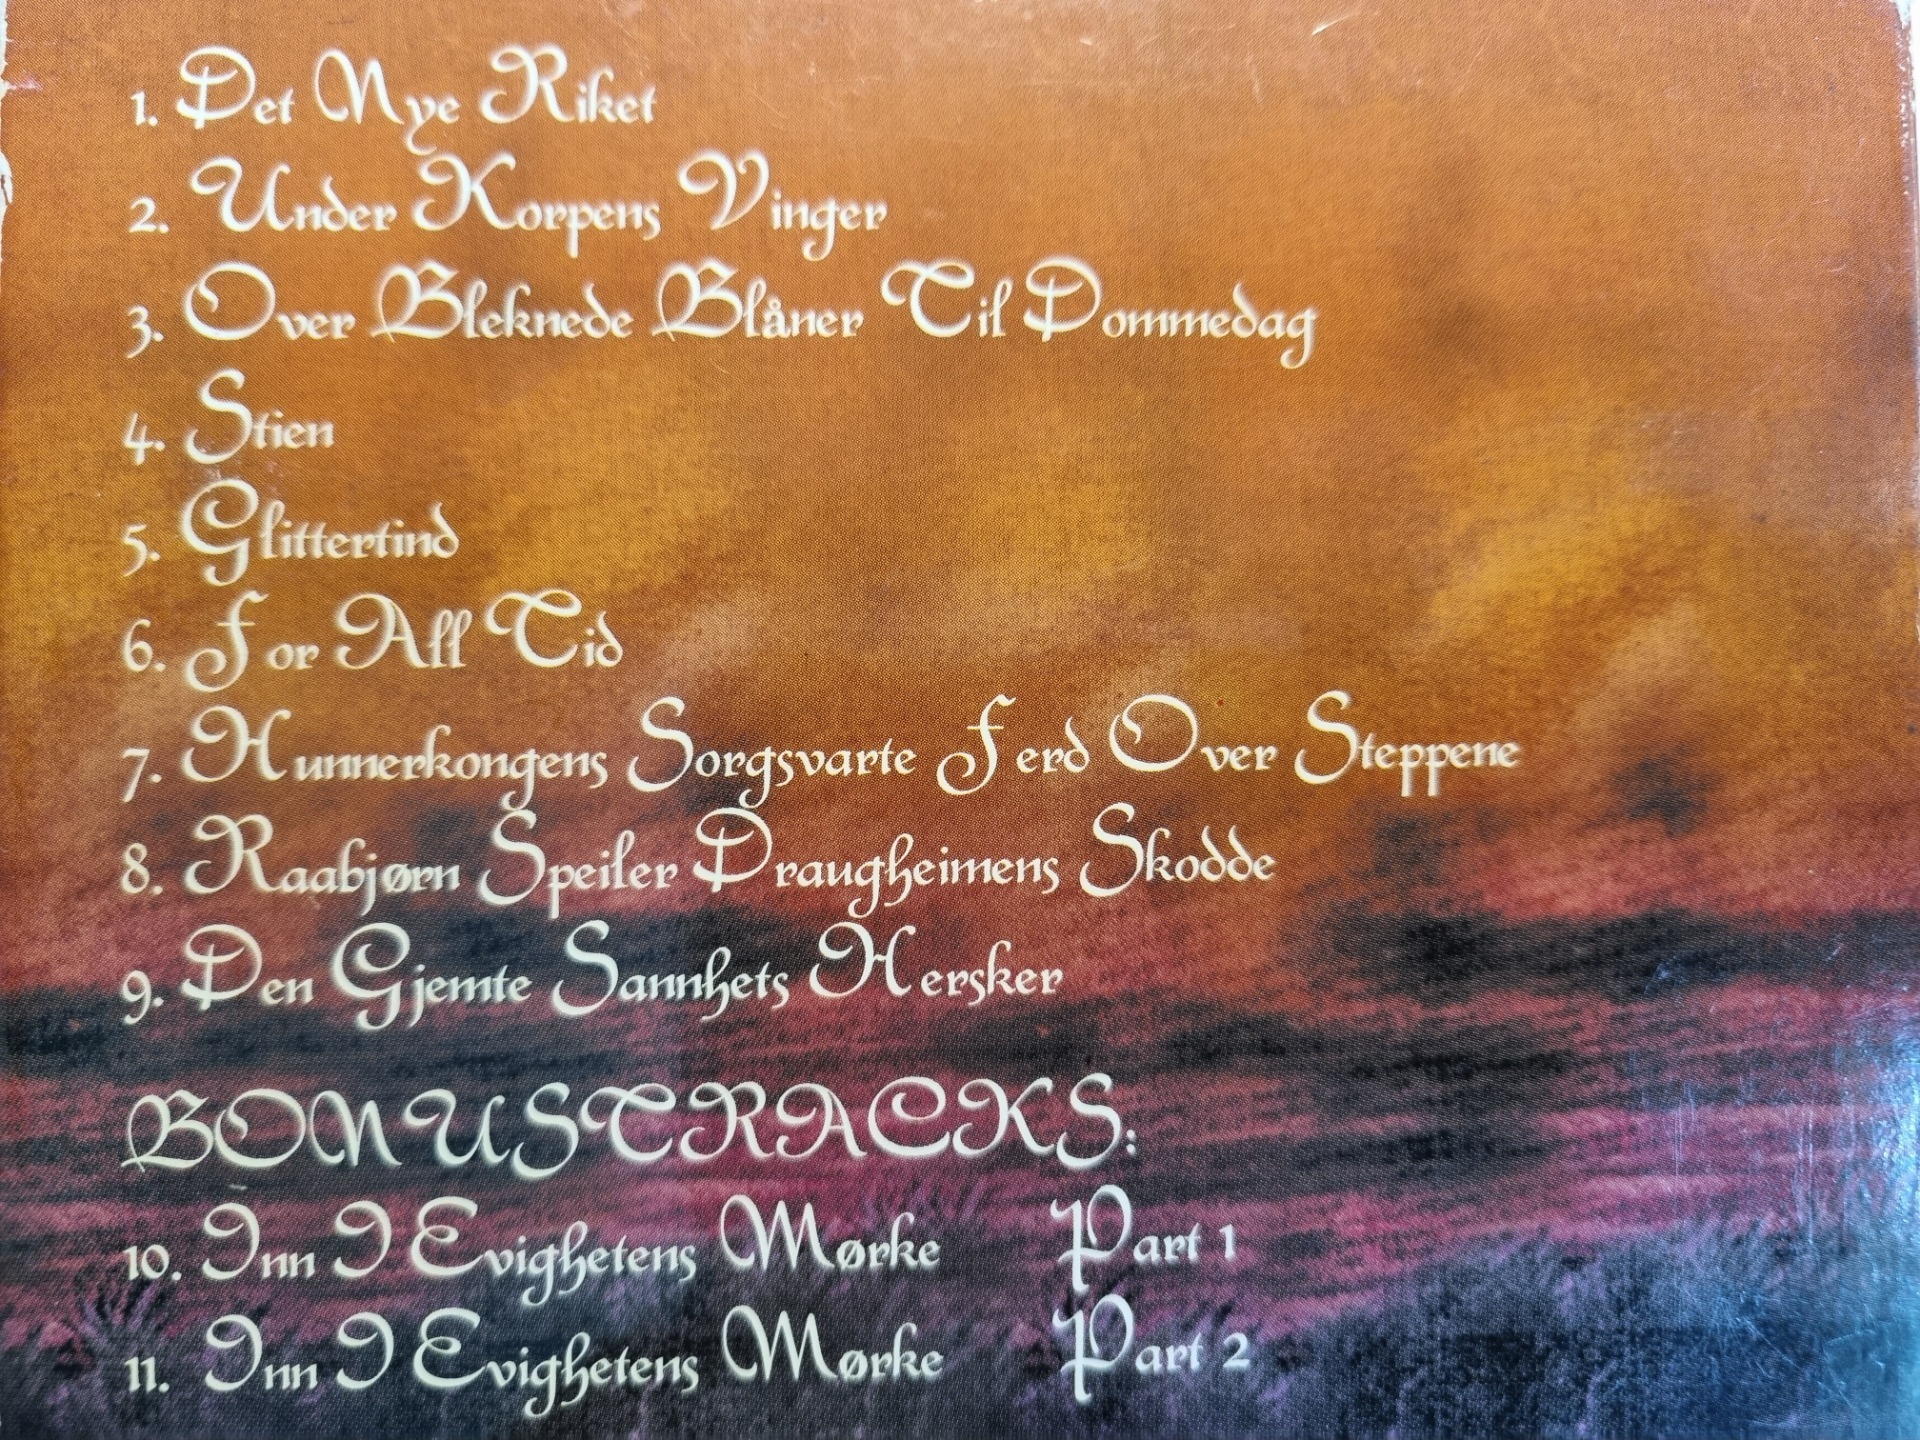 1. Det Nye Riket
2. Under Korpens Vinger
3. Over Bleknede Blåner Til Dommedag
4. Stien
5. Glittertind
6. For All Tid
7. Hunnerkongens Sorgsvarte Ferd Over Steppene
8. Raabjørn Speiler Draugheimens Skodde
9. Den Gjemte Sannhets Hersker
BONUSTRACKS:
10. Inn I Evighetens Mørke Part 1
11. Inn I Evighetens Mørke Part 2